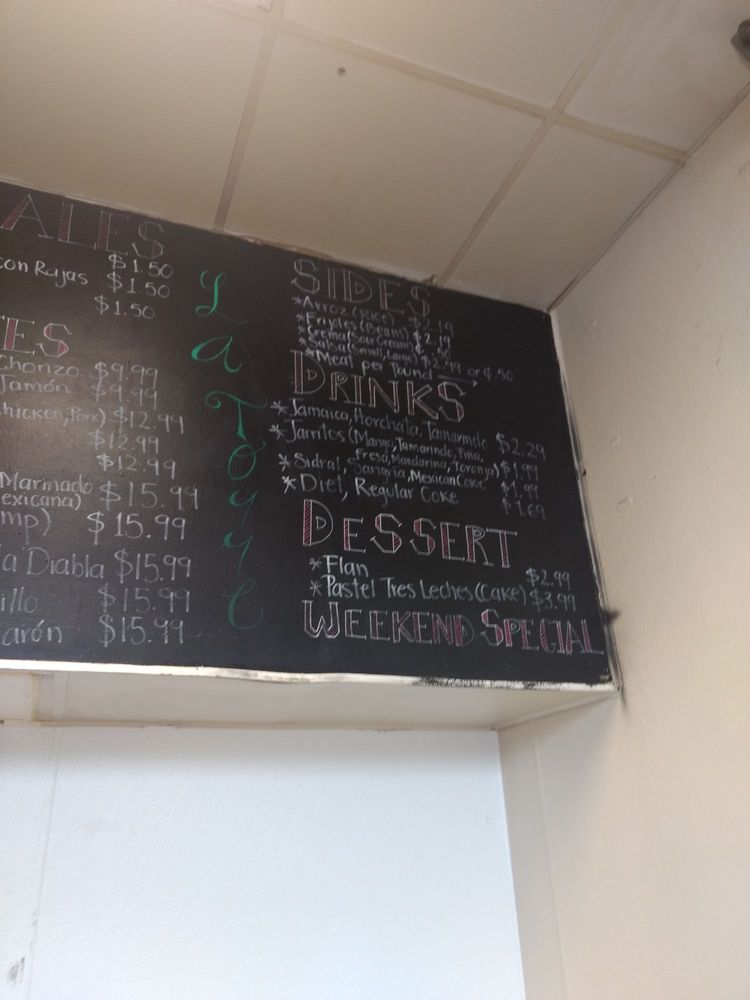 ALES
$1.50
con Rajas $1.50
$1.50
ES
Chorizo $9.99
Jamón $9.99
hicken, Pork) $12.99
$12.99
$12.99
Marinado
exicana) $15.99
mp) $15.99
la Diabla $15.99
illo $15.99
arón $15.99
La Toyye
SIDES
*Arroz (Rice) $2.19
*Frijoles (Beans) $2.19
*Crema (Sour Cream) $.50
*Salsa (Small, Large) $2.99 or $.50
*Meat per Pound
DRINKS
*Jamaica, Horchata, Tamarindo $2.29
*Jarritos (Mango, Tamarindo, Piña,
Fresa, Mandarina, Toronja) $1.99
*Sidral, Sangria, Mexican Coke $1.99
*Diet, Regular Coke $1.69
DESSERT
*Flan $2.99
*Pastel Tres Leches (Cake) $3.99
WEEKEND SPECIAL